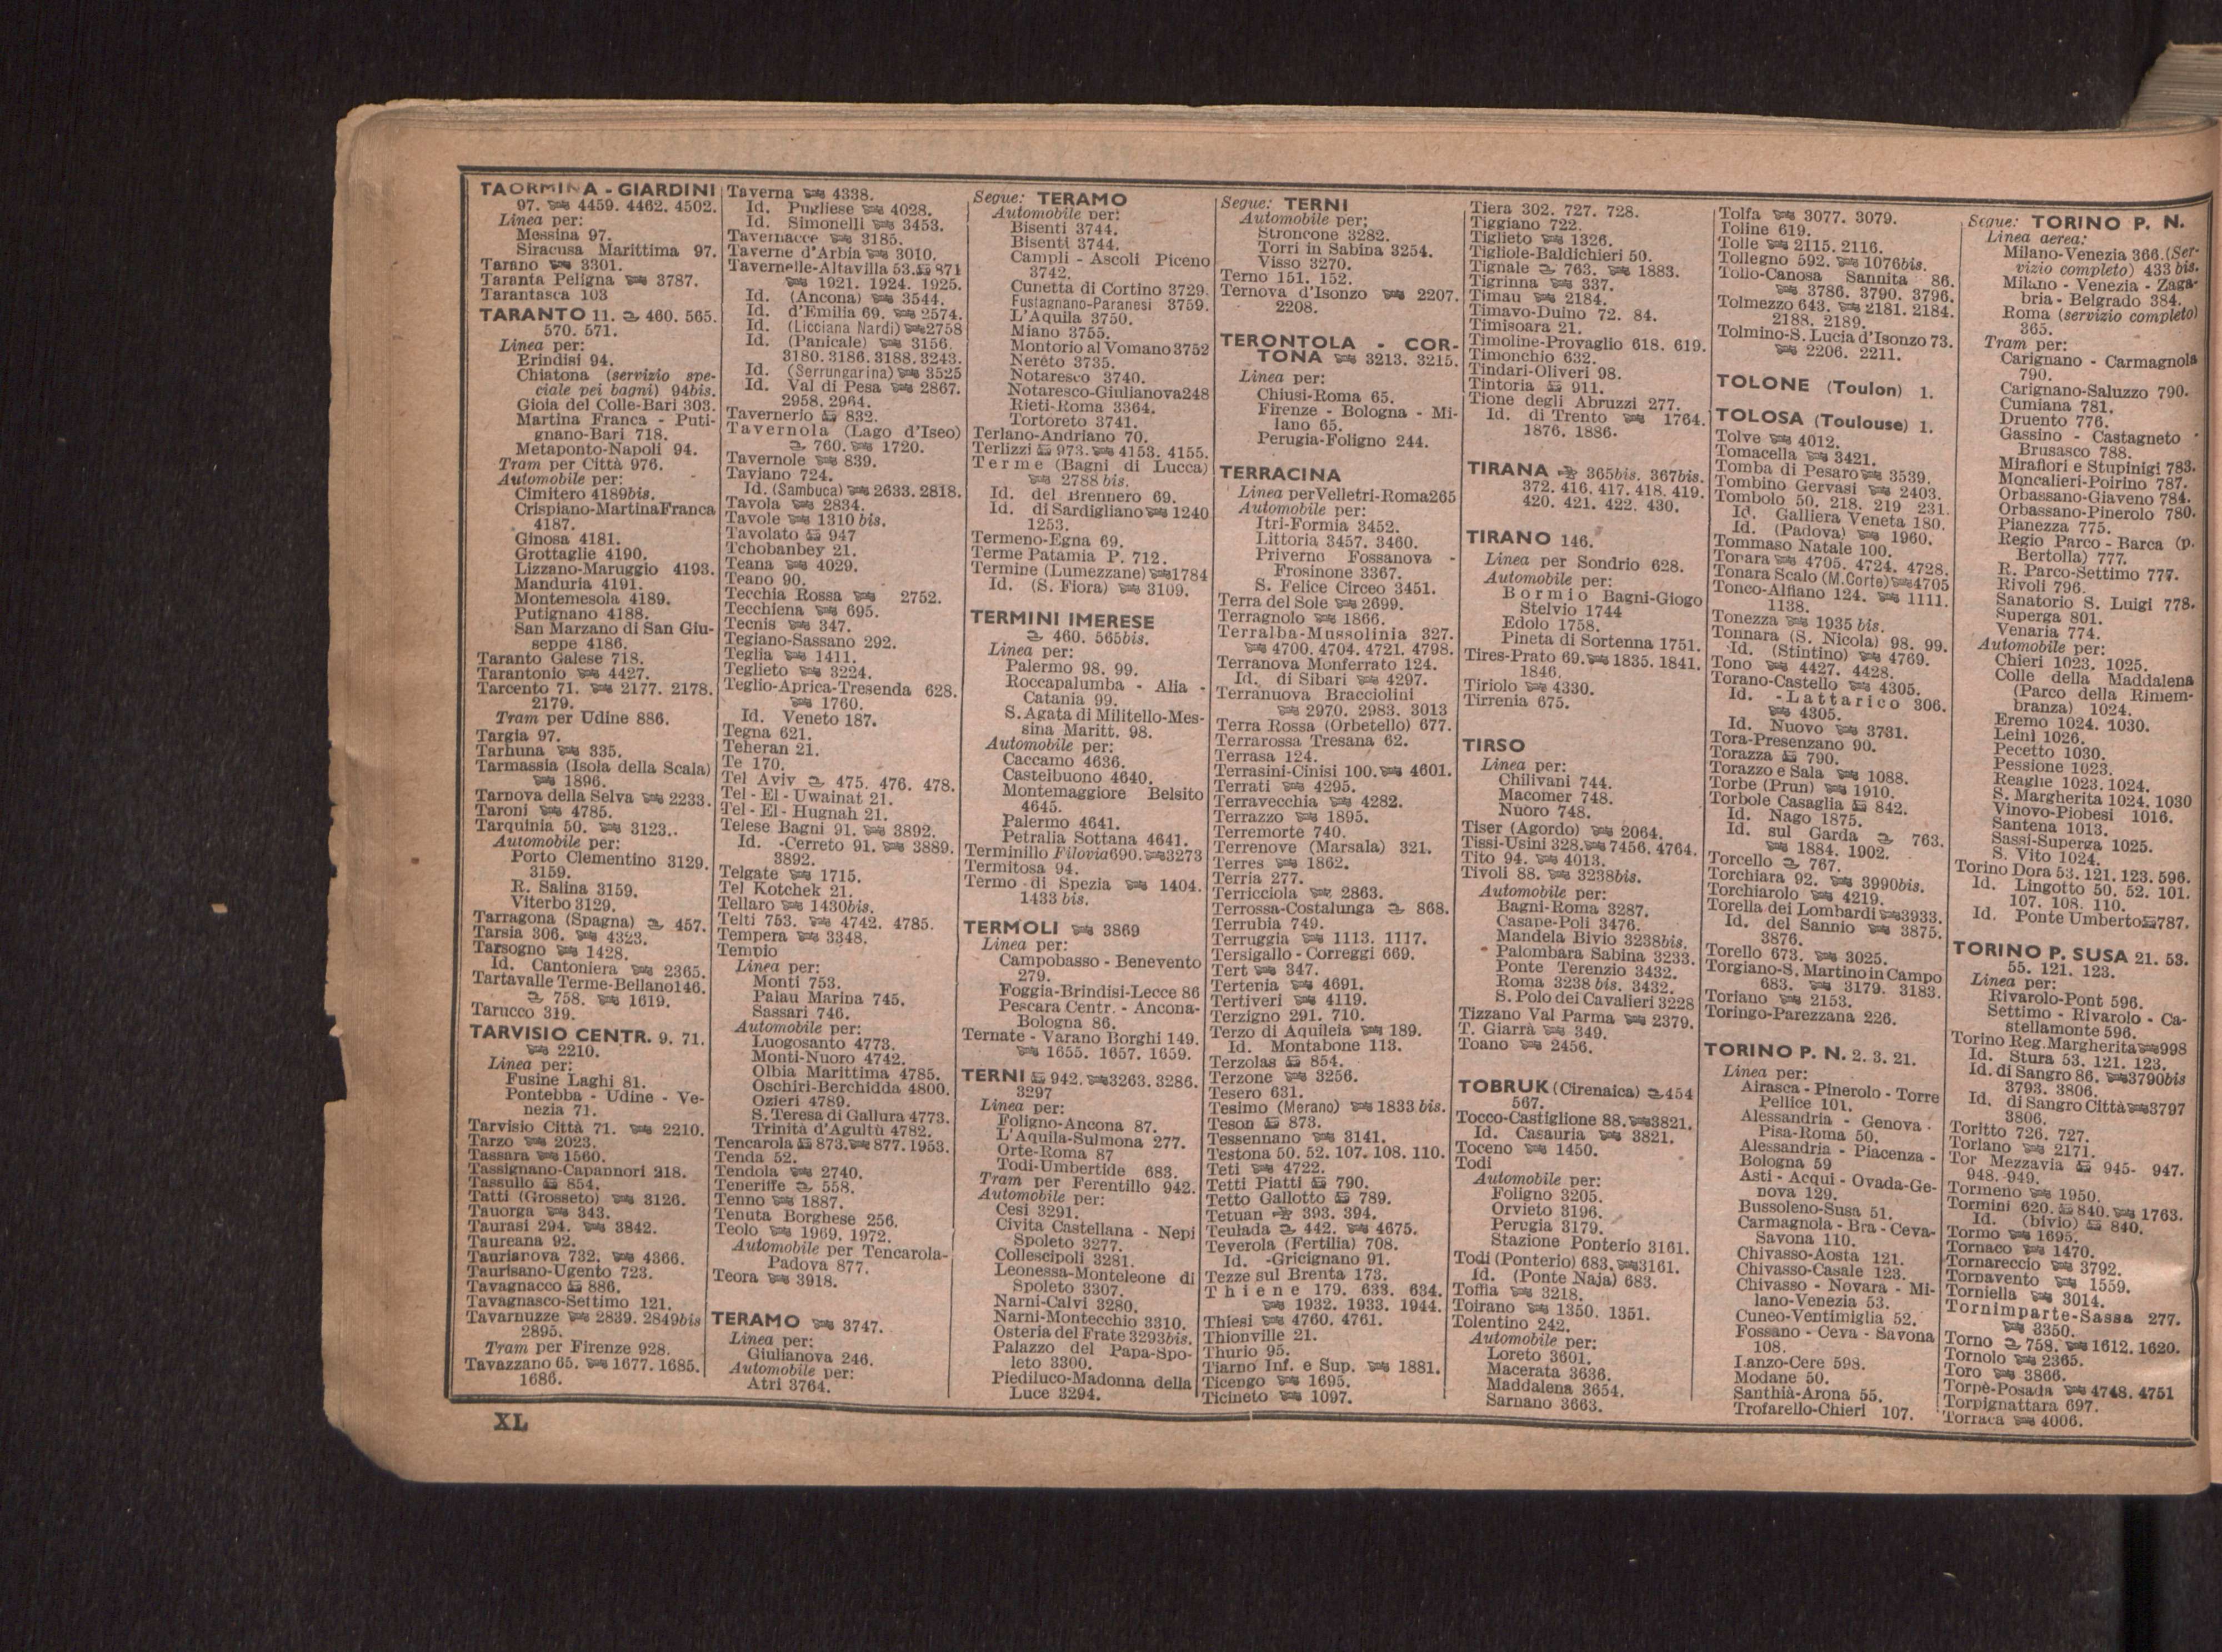 TAORMINA - GIARDINI
97. 4459. 4462. 4502.
Linea per:
Messina 97.
Siracusa Marittima 97.
Tarano 3301.
Taranta Peligna 3787.
Tarantasca 103
TARANTO 11. 460. 565.
570. 571.
Linea per:
Brindisi 94.
Chiatona (servizio spe-
ciale pei bagni) 94bis.
Gioia del Colle-Bari 303.
Martina Franca - Puti-
gnano-Bari 718.
Metaponto-Napoli 94.
Tram per Città 976.
Automobile per:
Cimitero 4189bis.
Crispiano-MartinaFranca
4187.
Ginosa 4181.
Grottaglie 4190.
Lizzano-Maruggio 4193.
Manduria 4191.
Montemesola 4189.
Putignano 4188.
San Marzano di San Giu-
seppe 4186.
Taranto Galese 718.
Tarantonio 4427.
Tarcento 71. 2177. 2178.
2179.
Tram per Udine 886.
Targia 97.
Tarhuna 335.
Tarmassia (Isola della Scala)
1896.
Tarnova della Selva 2233.
Taroni 4785.
Tarquinia 50. 3123..
Automobile per:
Porto Clementino 3129.
3159.
R. Salina 3159.
Viterbo 3129.
Tarragona (Spagna) 457.
Tarsia 306. 4323.
Tarsogno 1428.
Id. Cantoniera 2365.
Tartavalle Terme-Bellano146.
758. 1619.
Tarucco 319.
TARVISIO CENTR. 9. 71.
2210.
Linea per:
Fusine Laghi 81.
Pontebba - Udine - Ve-
nezia 71.
Tarvisio Città 71. 2210.
Tarzo 2023.
Tassara 1560.
Tassignano-Capannori 218.
Tassullo 854.
Tatti (Grosseto) 3126.
Tauorga 343.
Taurasi 294. 3842.
Taureana 92.
Taurianova 732. 4366.
Taurisano-Ugento 723.
Tavagnacco 886.
Tavagnasco-Settimo 121.
Tavarnuzze 2839. 2849bis
2895.
Tram per Firenze 928.
Tavazzano 65. 1677. 1685.
1686.
Taverna 4338.
Id. Pugliese 4028.
Id. Simonelli 3453.
Tavernacce 3185.
Taverne d'Arbia 3010.
Tavernelle-Altavilla 53. 871
1921. 1924. 1925.
Id. (Ancona) 3544.
Id. d'Emilia 69. 2574.
Id. (Licciana Nardi) 2758
Id. (Panicale) 3156.
3180. 3186. 3188. 3243.
Id. (Serrungarina) 3525
Id. Val di Pesa 2867.
2958. 2964.
Tavernerio 832.
Tavernola (Lago d'Iseo)
760. 1720.
Tavernole 839.
Taviano 724.
Id. (Sambuca) 2633. 2818.
Tavola 2834.
Tavole 1310 bis.
Tavolato 947
Tchobanbey 21.
Teana 4029.
Teano 90.
Tecchia Rossa 2752.
Tecchiena 695.
Tecnis 347.
Tegiano-Sassano 292.
Teglia 1411.
Teglieto 3224.
Teglio-Aprica-Tresenda 628.
1760.
Id. Veneto 187.
Tegna 621.
Teheran 21.
Te 170.
Tel Aviv 475. 476. 478.
Tel - El - Uwainat 21.
Tel - El - Hugnah 21.
Telese Bagni 91. 3892.
Id. -Cerreto 91. 3889.
3892.
Telgate 1715.
Tel Kotchek 21.
Tellaro 1430bis.
Telti 753. 4742. 4785.
Tempera 3348.
Tempio
Linea per:
Monti 753.
Palau Marina 745.
Sassari 746.
Automobile per:
Luogosanto 4773.
Monti-Nuoro 4742.
Olbia Marittima 4785.
Oschiri-Berchidda 4800.
Ozieri 4789.
S. Teresa di Gallura 4773.
Trinità d'Agultu 4782.
Tencarola 873. 877. 1953.
Tenda 52.
Tendola 2740.
Teneriffe 558.
Tenno 1887.
Tenuta Borghese 256.
Teolo 1969. 1972.
Automobile per Tencarola-
Padova 877.
Teora 3918.
TERAMO 3747.
Linea per:
Giulianova 246.
Automobile per:
Atri 3764.
Segue: TERAMO
Automobile per:
Bisenti 3744.
Bisenti 3744.
Campli - Ascoli Piceno
3742.
Cunetta di Cortino 3729.
Fustagnano-Paranesi 3759.
L'Aquila 3750.
Miano 3755.
Montorio al Vomano 3752
Nereto 3735.
Notaresco 3740.
Notaresco-Giulianova248
Rieti-Roma 3364.
Tortoreto 3741.
Terlano-Andriano 70.
Terlizzi 973. 4153. 4155.
Terme (Bagni di Lucca)
2788 bis.
Id. del Brennero 69.
Id. di Sardigliano 1240
1253.
Termeno-Egna 69.
Terme Patamia P. 712.
Termine (Lumezzane) 1784
Id. (S. Fiora) 3109.
TERMINI IMERESE
460. 565bis.
Linea per:
Palermo 98. 99.
Roccapalumba - Alia -
Catania 99.
S. Agata di Militello-Mes-
sina Maritt. 98.
Automobile per:
Caccamo 4636.
Castelbuono 4640.
Montemaggiore Belsito
4645.
Palermo 4641.
Petralia Sottana 4641.
Terminillo Filovia690. 3273
Termitosa 94.
Termo di Spezia 1404.
1433 bis.
TERMOLI 3869
Linea per:
Campobasso - Benevento
279.
Foggia-Brindisi-Lecce 86
Pescara Centr. - Ancona-
Bologna 86.
Ternate - Varano Borghi 149.
1655. 1657. 1659.
TERNI 942. 3263. 3286.
3297
Linea per:
Foligno-Ancona 87.
L'Aquila-Sulmona 277.
Orte-Roma 87
Todi-Umbertide 683.
Tram per Ferentillo 942.
Automobile per:
Cesi 3291.
Civita Castellana - Nepi
Spoleto 3277.
Collescipoli 3281.
Leonessa-Monteleone di
Spoleto 3307.
Narni-Calvi 3280.
Narni-Montecchio 3310.
Osteria del Frate 3293bis.
Palazzo del Papa-Spo-
leto 3300.
Piediluco-Madonna della
Luce 3294.
Segue: TERNI
Automobile per:
Stroncone 3282.
Torri in Sabina 3254.
Visso 3270.
Terno 151. 152.
Ternova d'Isonzo 2207.
2208.
TERONTOLA - COR-
TONA 3213. 3215.
Linea per:
Chiusi-Roma 65.
Firenze - Bologna - Mi-
lano 65.
Perugia-Foligno 244.
TERRACINA
Linea perVelletri-Roma265
Automobile per:
Itri-Formia 3452.
Littoria 3457. 3460.
Priverno Fossanova -
Frosinone 3367.
S. Felice Circeo 3451.
Terra del Sole 2699.
Terragnolo 1866.
Terralba-Mussolinia 327.
4700. 4704. 4721. 4798.
Terranova Monferrato 124.
Id. di Sibari 4297.
Terranuova Bracciolini
2970. 2983. 3013
Terra Rossa (Orbetello) 677.
Terrarossa Tresana 62.
Terrasa 124.
Terrasini-Cinisi 100. 4601.
Terrati 4295.
Terravecchia 4282.
Terrazzo 1895.
Terremorte 740.
Terrenove (Marsala) 321.
Terres 1862.
Terria 277.
Terricciola 2863.
Terrossa-Costalunga 868.
Terrubia 749.
Terruggia 1113. 1117.
Tersigallo - Correggi 669.
Tert 347.
Tertenia 4691.
Tertiveri 4119.
Terzigno 291. 710.
Terzo di Aquileia 189.
Id. Montabone 113.
Terzolas 854.
Terzone 3256.
Tesero 631.
Tesimo (Merano) 1833 bis.
Teson 873.
Tessennano 3141.
Testona 50. 52. 107. 108. 110.
Teti 4722.
Tetti Piatti 790.
Tetto Gallotto 789.
Tetuan 393. 394.
Teulada 442. 4675.
Teverola (Fertilia) 708.
Id. -Gricignano 91.
Tezze sul Brenta 173.
Thiene 179. 633. 634.
1932. 1933. 1944.
Thiesi 4760. 4761.
Thionville 21.
Thurio 95.
Tiarno Inf. e Sup. 1881.
Ticengo 1695.
Ticineto 1097.
Tiera 302. 727. 728.
Tiggiano 722.
Tiglieto 1326.
Tigliole-Baldichieri 50.
Tignale 763. 1883.
Tigrinna 337.
Timau 2184.
Timavo-Duino 72. 84.
Timisoara 21.
Timoline-Provaglio 618. 619.
Timonchio 632.
Tindari-Oliveri 98.
Tintoria 911.
Tione degli Abruzzi 277.
Id. di Trento 1764.
1876. 1886.
TIRANA 365bis. 367bis.
372. 416. 417. 418. 419.
420. 421. 422. 430.
TIRANO 146.
Linea per Sondrio 628.
Automobile per:
Bormio Bagni-Giogo
Stelvio 1744
Edolo 1758.
Pineta di Sortenna 1751.
Tires-Prato 69. 1835. 1841.
1846.
Tiriolo 4330.
Tirrenia 675.
TIRSO
Linea per:
Chilivani 744.
Macomer 748.
Nuoro 748.
Tiser (Agordo) 2064.
Tissi-Usini 328. 7456. 4764.
Tito 94. 4013.
Tivoli 88. 3238bis.
Automobile per:
Bagni-Roma 3287.
Casape-Poli 3476.
Mandela Bivio 3238bis.
Palombara Sabina 3233.
Ponte Terenzio 3432.
Roma 3238 bis. 3432.
S. Polo dei Cavalieri 3228
Tizzano Val Parma 2379.
T. Giarrà 349.
Toano 2456.
TOBRUK (Cirenaica) 454
567.
Tocco-Castiglione 88. 3821.
Id. Casauria 3821.
Toceno 1450.
Todi
Automobile per:
Foligno 3205.
Orvieto 3196.
Perugia 3179.
Stazione Ponterio 3161.
Todi (Ponterio) 683. 3161.
Id. (Ponte Naja) 683.
Toffia 3218.
Toirano 1350. 1351.
Tolentino 242.
Automobile per:
Loreto 3601.
Macerata 3636.
Maddalena 3654.
Sarnano 3663.
Tolfa 3077. 3079.
Toline 619.
Tolle 2115. 2116.
Tollegno 592. 1076bis.
Tollo-Canosa Sannita 86.
3786. 3790. 3796.
Tolmezzo 643. 2181. 2184.
2188. 2189.
Tolmino-S. Lucia d'Isonzo 73.
2206. 2211.
TOLONE (Toulon) 1.
TOLOSA (Toulouse) 1.
Tolve 4012.
Tomacella 3421.
Tomba di Pesaro 3539.
Tombino Gervasi 2403.
Tombolo 50. 218. 219 231.
Id. Galliera Veneta 180.
Id. (Padova) 1960.
Tommaso Natale 100.
Tonara 4705. 4724. 4728.
Tonara Scalo (M.Corte) 4705
Tonco-Alfiano 124. 1111.
1138.
Tonezza 1935 bis.
Tonnara (S. Nicola) 98. 99.
Id. (Stintino) 4769.
Tono 4427. 4428.
Torano-Castello 4305.
Id. -Lattarico 306.
4305.
Id. Nuovo 3731.
Tora-Presenzano 90.
Torazza 790.
Torazzo e Sala 1088.
Torbe (Prun) 1910.
Torbole Casaglia 842.
Id. Nago 1875.
Id. sul Garda 763.
1884. 1902.
Torcello 767.
Torchiara 92. 3990bis.
Torchiarolo 4219.
Torella dei Lombardi 3933.
Id. del Sannio 3875.
3876.
Torello 673. 3025.
Torgiano-S. Martino in Campo
683. 3179. 3183.
Toriano 2153.
Toringo-Parezzana 226.
TORINO P. N. 2. 3. 21.
Linea per:
Airasca - Pinerolo - Torre
Pellice 101.
Alessandria - Genova -
Pisa-Roma 50.
Alessandria - Piacenza -
Bologna 59
Asti - Acqui - Ovada-Ge-
nova 129.
Bussoleno-Susa 51.
Carmagnola - Bra - Ceva-
Savona 110.
Chivasso-Aosta 121.
Chivasso-Casale 123.
Chivasso - Novara - Mi-
lano-Venezia 53.
Cuneo-Ventimiglia 52.
Fossano - Ceva - Savona
108.
Lanzo-Cere 598.
Modane 50.
Santhià-Arona 55.
Trofarello-Chieri 107.
Segue: TORINO P. N.
Linea aerea:
Milano-Venezia 366.(Ser-
vizio completo) 433 bis.
Milano - Venezia - Zaga-
bria - Belgrado 384.
Roma (servizio completo)
365.
Tram per:
Carignano - Carmagnola
790.
Carignano-Saluzzo 790.
Cumiana 781.
Druento 776.
Gassino - Castagneto -
Brusasco 788.
Mirafiori e Stupinigi 783.
Moncalieri-Poirino 787.
Orbassano-Giaveno 784.
Orbassano-Pinerolo 780.
Pianezza 775.
Regio Parco - Barca (p.
Bertolla) 777.
R. Parco-Settimo 777.
Rivoli 796.
Sanatorio S. Luigi 778.
Superga 801.
Venaria 774.
Automobile per:
Chieri 1023. 1025.
Colle della Maddalena
(Parco della Rimem-
branza) 1024.
Eremo 1024. 1030.
Leini 1026.
Pecetto 1030.
Pessione 1023.
Reaglie 1023. 1024.
S. Margherita 1024. 1030
Vinovo-Piobesi 1016.
Santena 1013.
Sassi-Superga 1025.
S. Vito 1024.
Torino Dora 53. 121. 123. 596.
Id. Lingotto 50. 52. 101.
107. 108. 110.
Id. Ponte Umberto 787.
TORINO P. SUSA 21. 53.
55. 121. 123.
Linea per:
Rivarolo-Pont 596.
Settimo - Rivarolo - Ca-
stellamonte 596.
Torino Reg.Margherita 998
Id. Stura 53. 121. 123.
Id. di Sangro 86. 3790bis
3793. 3806.
Id. di Sangro Città 3797
3806.
Toritto 726. 727.
Torlano 2171.
Tor Mezzavia 945- 947.
948. 949.
Tormeno 1950.
Tormini 620. 840. 1763.
Id. (bivio) 840.
Tormo 1695.
Tornaco 1470.
Tornareccio 3792.
Tornavento 1559.
Torniella 3014.
Tornimparte-Sassa 277.
3350.
Torno 758. 1612. 1620.
Tornolo 2365.
Toro 3866.
Torpè-Posada 4748. 4751
Torpignattara 697.
Torraca 4006.
XL